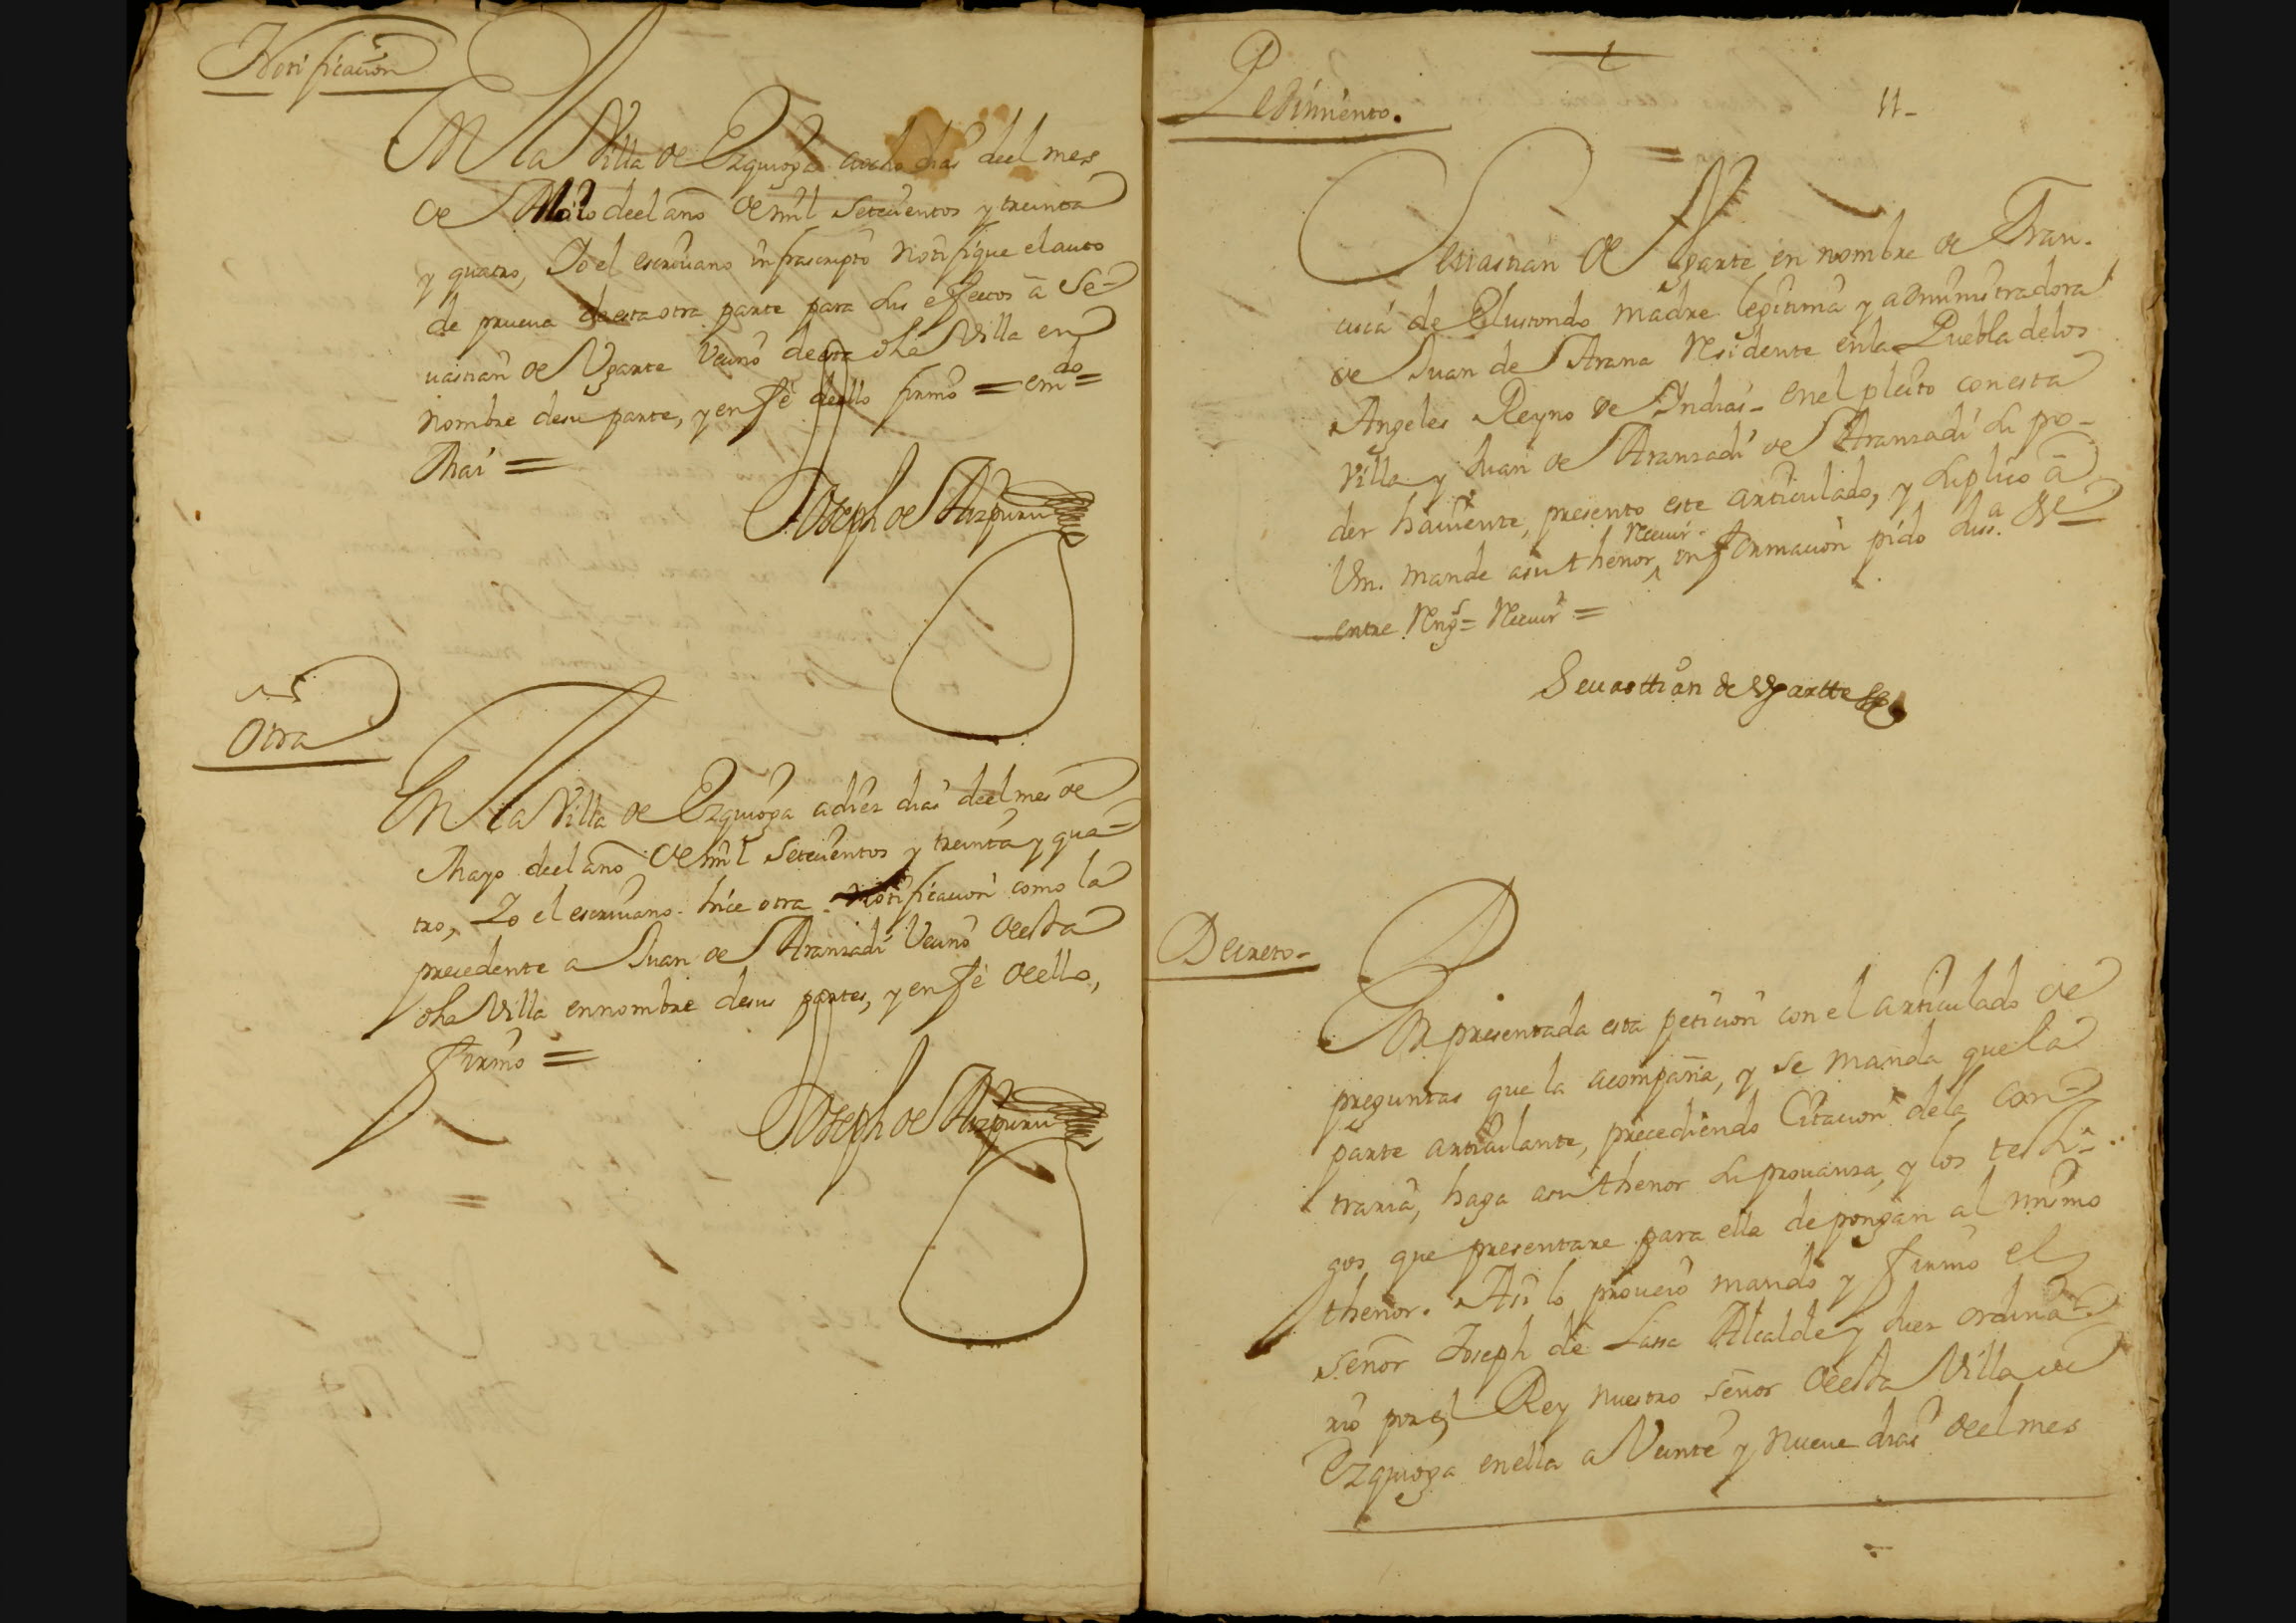 Notificaçion
En la Villa de Ezquioga a ocho dias deel mes
de Maio deel año de mil setecientos y treinta
y quatro, Yo el escriuano infrascripto notifique el auto
de prueua de esta otra parte para sus effectos â Se-
uastian de Vgarte Vecino de esta dha Villa en
nombre de su parte, y en fê de ello firmô = emdo =
Mai =
Joseph de Aizpuru
Otra
En la Villa de Ezquioga a diez dias deel mes de
Mayo deel año de mil setecientos y treinta y qua-
tro, Yo el escriuano hice otra notificacion como la
precedente a Juan de Aranzadi Vecino de esta
dha Villa en nombre de sus partes, y en fê de ello,
firmô =
Joseph de Aizpuru
Pedimiento.
11-
Sebastian de Vgarte en nombre de Fran-
cisca de Elustondo madre legitima y administradora
de Juan de Arana Residente en la Puebla de los
Angeles Reyno de Indias - en el pleito con esta
Villa y Juan de Aranzadi de Aranzadi su po-
der hauiente, presento este articulado, y suplico â
Vm. mande a su thenor ^ informacion pido Juss.a &e
Receuir
entre Rengs = Receuir =
Seuasttian de Vgartte
Decreto-
En presentada esta peticion con el articulado de
preguntas que la acompaña, y se manda que la
parte articulante, precediendo Citacion de la con-
traria, haga a su thenor su prouanza, y los testi-
gos que presentare para ella depongan al mismo
thenor. Asi lo proueiô mandô y firmô el
señor Joseph de Lassa Alcalde y Juez ordina-
rio por el Rey nuestro señor de esta Villa de
Ezquioga en ella a Veinte y nueue dias deel mes